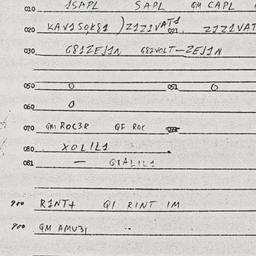 010 1SAPL SAPL GM CAPL
020 KAV1SOK81 )Z1Z1VAT1 021 Z1Z1VAT
030 G81ZEJ1N G82VOLT—ZEJ1N
050 0 051 0
060 0
070 GM1 ROC3R GF ROC
080 XOL1L1
081 — G1AL1L1
900 R1NT+ Q1 R1NT 1M
900 GM AMU31